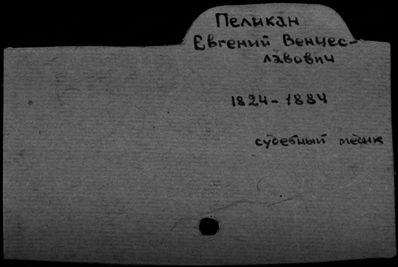 Пеликан
Евгений Венцес-
лавович
1824-1884
судебный медик